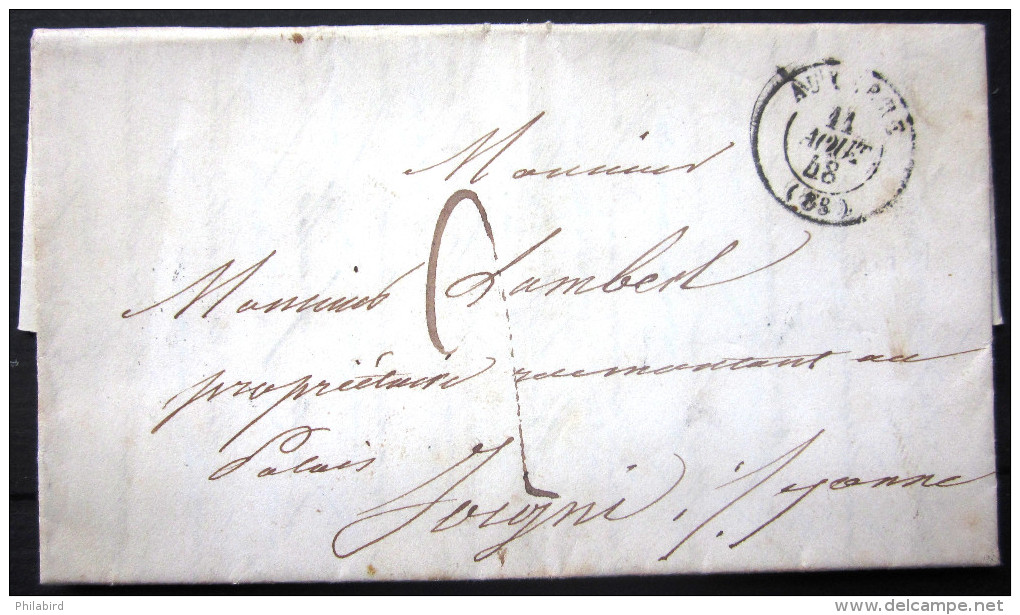 AUXERRE
11
AOUT
48
(88)
Monsieur
Monsieur Lambert
propriétaire rue montant au
Palais
Joigni, yonne
Philabird
www.delcampe.net